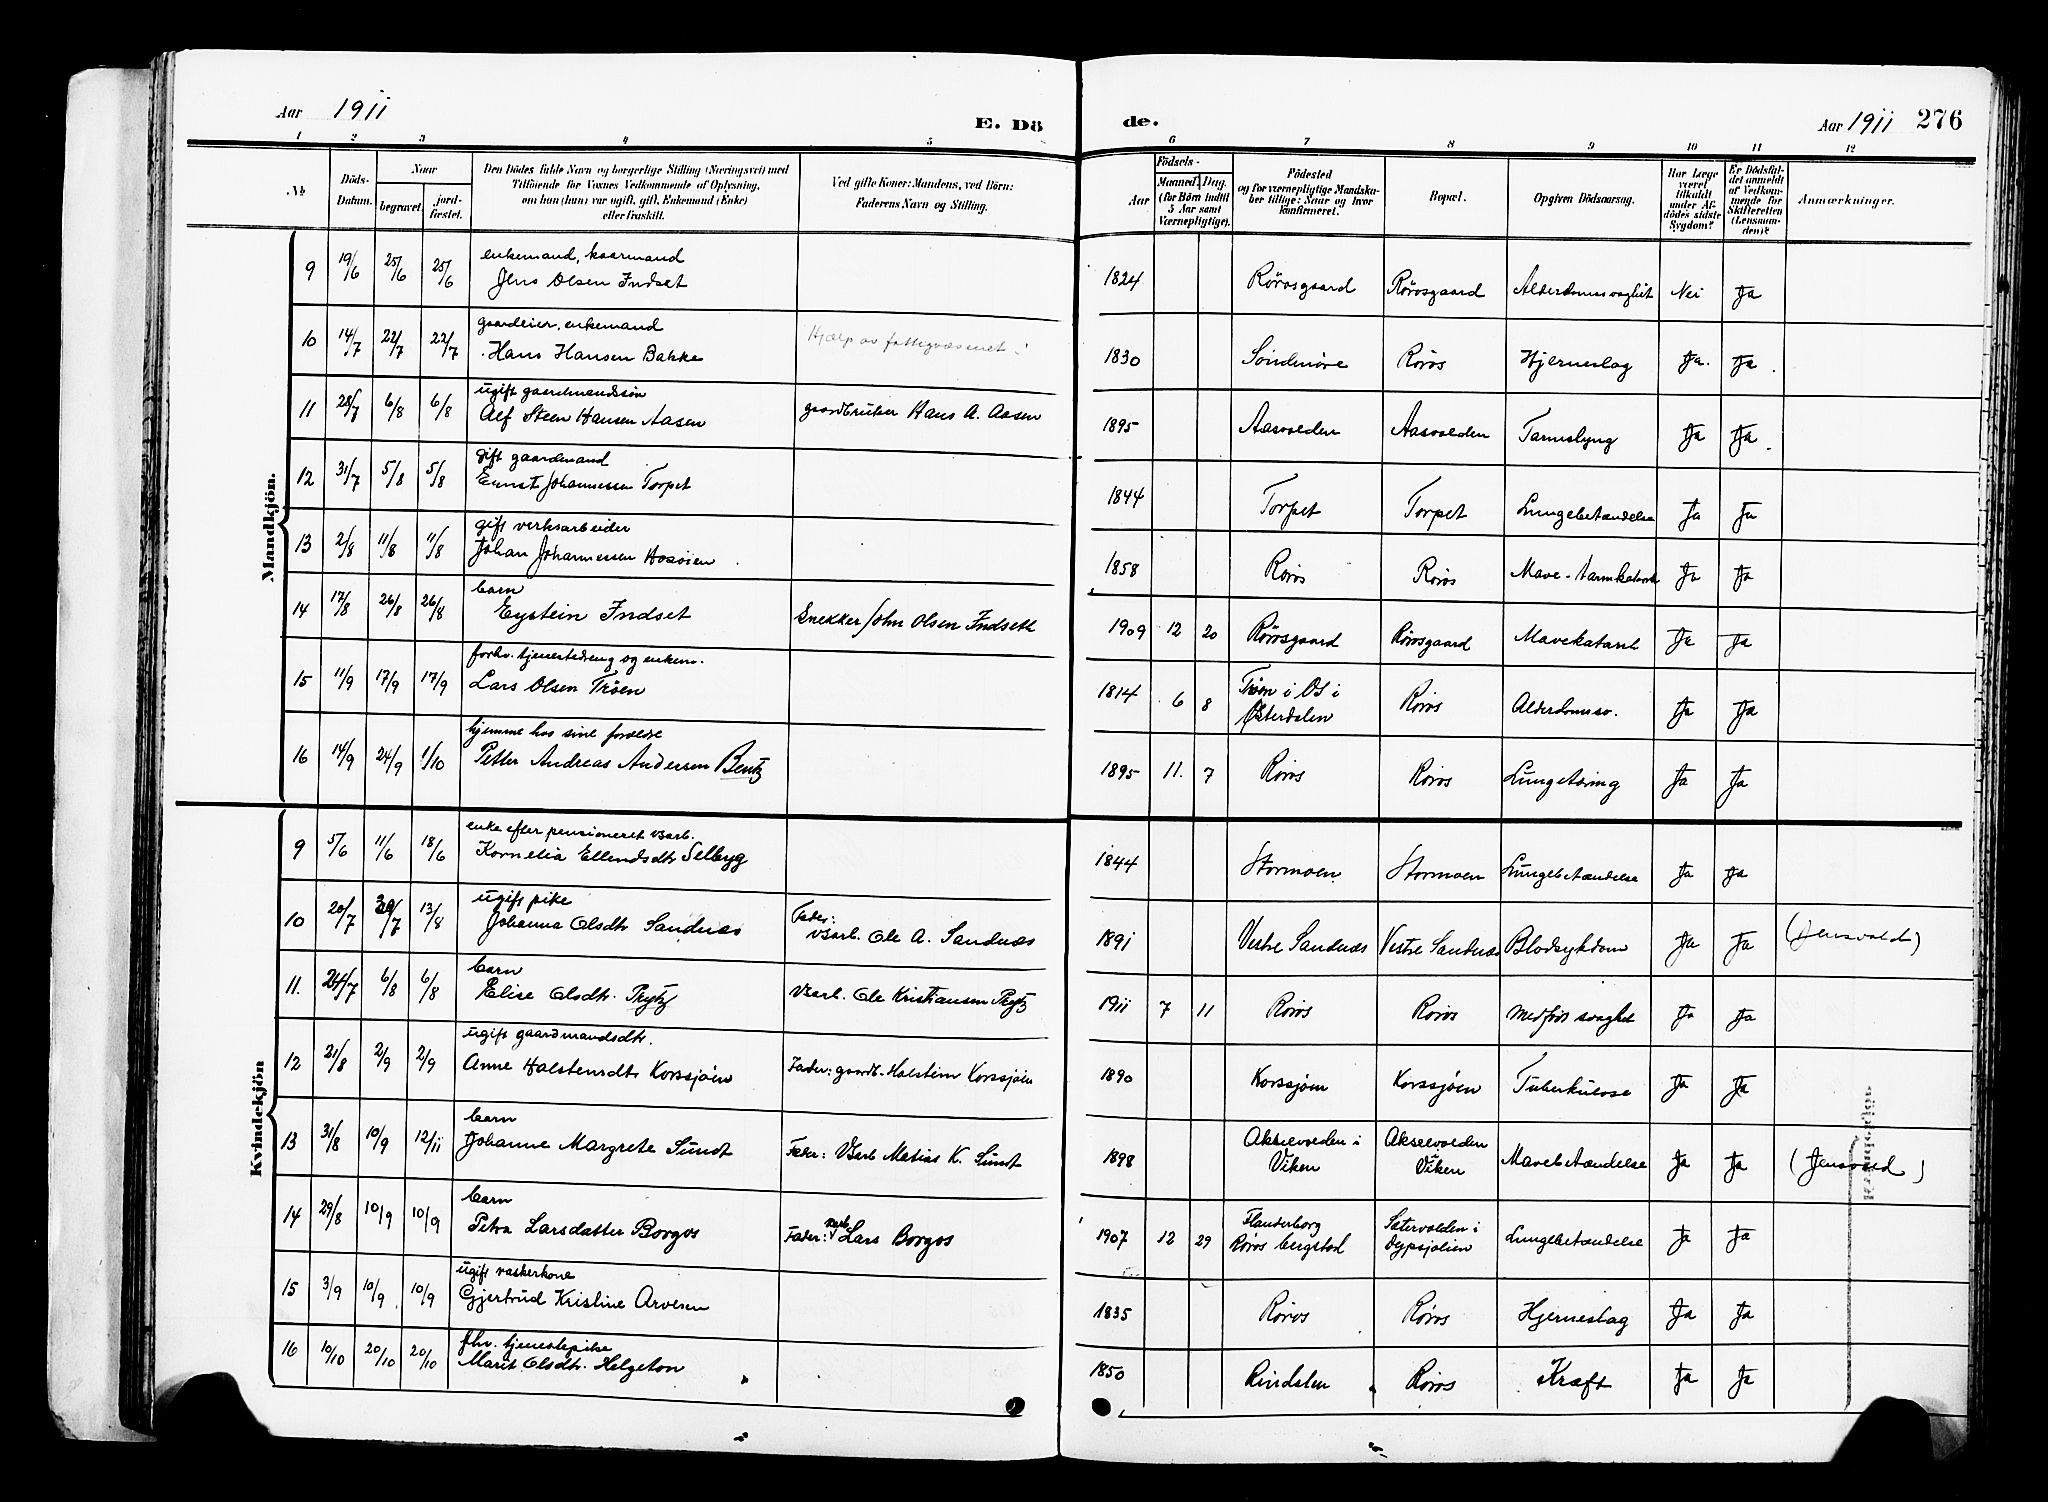 Aar 1911
E. Dö
de.
Aar 1911 276
1 2 3 4 5 6 7 8 9 10 11 12
No.
Döds-Datum.
Naar
begravet.
jord-fæstet.
Den Dödes fulde Navn og borgerlige Stilling (Næringsvei) med
Tilföiende for Voxnes Vedkommende af Oplysning,
om han (hun) var ugift, gift, Enkemand (Enke)
eller fraskilt.
Ved gifte Koner: Mandens, ved Börn:
Faderens Navn og Stilling.
Födsels-
Aar
Maaned. Dag.
(for Börn indtil
5 Aar samt
Værnepligtige).
Födested
og for værnepligtige Mandska-
ber tillige: Naar og hvor
konfirmeret.
Bopæl.
Opgiven Dödsaarsag.
Har Læge
været
tilkaldt
under Af-
dödes sidste
Sygdom?
Er Dödsfal-
det anmeldt
af Vedkom-
mende for
Skifteretten
(Lensman-
den)?
Anmærkninger.
Mandkjön.
enkemand, kaarmand
9 19/6 25/6 25/6 Jens Olsen Indset 1824 Rörosgaard Rörosgaard Alderdomssvaghet Nei Ja
gaardeier, enkemand
10 14/7 22/7 22/7 Hans Hansen Bakke Hjælp av fattigvæsenet! 1830 Söndmöre Röros Hjerneslag Ja. Ja.
ugift gaardmandssön
11 28/7 6/8 6/8 Alf Steen Hansen Aasen gaardbruker Hans A. Aasen 1895 Aasvolden Aasvolden Tarmslyng Ja Ja.
gift gaardmand
12 31/7 5/8 5/8 Ernst Johannessen Torpet 1844 Torpet Torpet Lungebetændelse Ja Ja
gift verksarbeider
13 2/8 11/8 11/8 Johan Johannessen Hosöien 1858 Röros Röros Mave-tarmkatarrh Ja Ja
barn
14 17/8 26/8 26/8 Eystein Indset Snekker John Olsen Indseth 1909 12 20 Rörosgaard Rörosgaard Mavekatarrh Ja Ja
forhv. tjenestedreng og enkem.
15 11/9 17/9 17/9 Lars Olsen Tröen 1814 6 8 Tröen i Os i Østerdalen Röros Alderdomssv. Ja Ja
hjemme hos sine forældre
16 14/9 24/9 1/10 Petter Andreas Andersen Bentz 1895 11. 7 Röros Röros Lungetæring Ja Ja
Kvindekjön
enke efter pensioneret varb.
9 5/6 11/6 18/6 Kornelia Ellendsdtr Selbyg 1844 Stormoen Stormoen Lungebetændelse Ja Ja
ugift pike
10 20/7 30/7 13/8 Johanna Olsdtr Sandnæs Fader: Varb. Ole A. Sandnæs 1891 Vestre Sandnæs Vestre Sandnæs Blodsykdom Ja Ja (Jensvold)
barn
11. 24/7 6/8 6/8 Elise Olsdtr. Prytz Varb. Ole Kristiansen Prytz 1911 7 11 Röros Röros Medfödt svaghet Ja Ja
ugift gaardmandsdtr.
12 21/8 2/9 2/9 Anne Halstensdtr Korssjöen Fader: gaardb. Halstein Korssjöen 1890 Korssjöen Korssjöen Tuberkulose Ja Ja
barn
13 31/8 10/9 12/11 Johanne Margrete Sundt Fader: Varb Matias K. Sundt 1898 Akselvolden i Viken Akselvolden Viken Mavebetændelse Ja Ja (Jensvold)
barn
14 29/8 10/9 10/9 Petra Larsdatter Borgos Fader: varb. Lars Borgos 1907 12 29 Flanderborg Röros bergstad Sætervolden i Dypsjölien Lungebetændelse Ja Ja
ugift vaskerkone
15 3/9 10/9 10/9 Gjertrud Kristine Arvesen 1835 Röros Röros Hjerneslag Ja Ja
fhv. tjenestepike
16 10/10 20/10 20/10 Marit Olsdtr. Helgeton 1850 Rindalen Röros Kræft Ja Ja